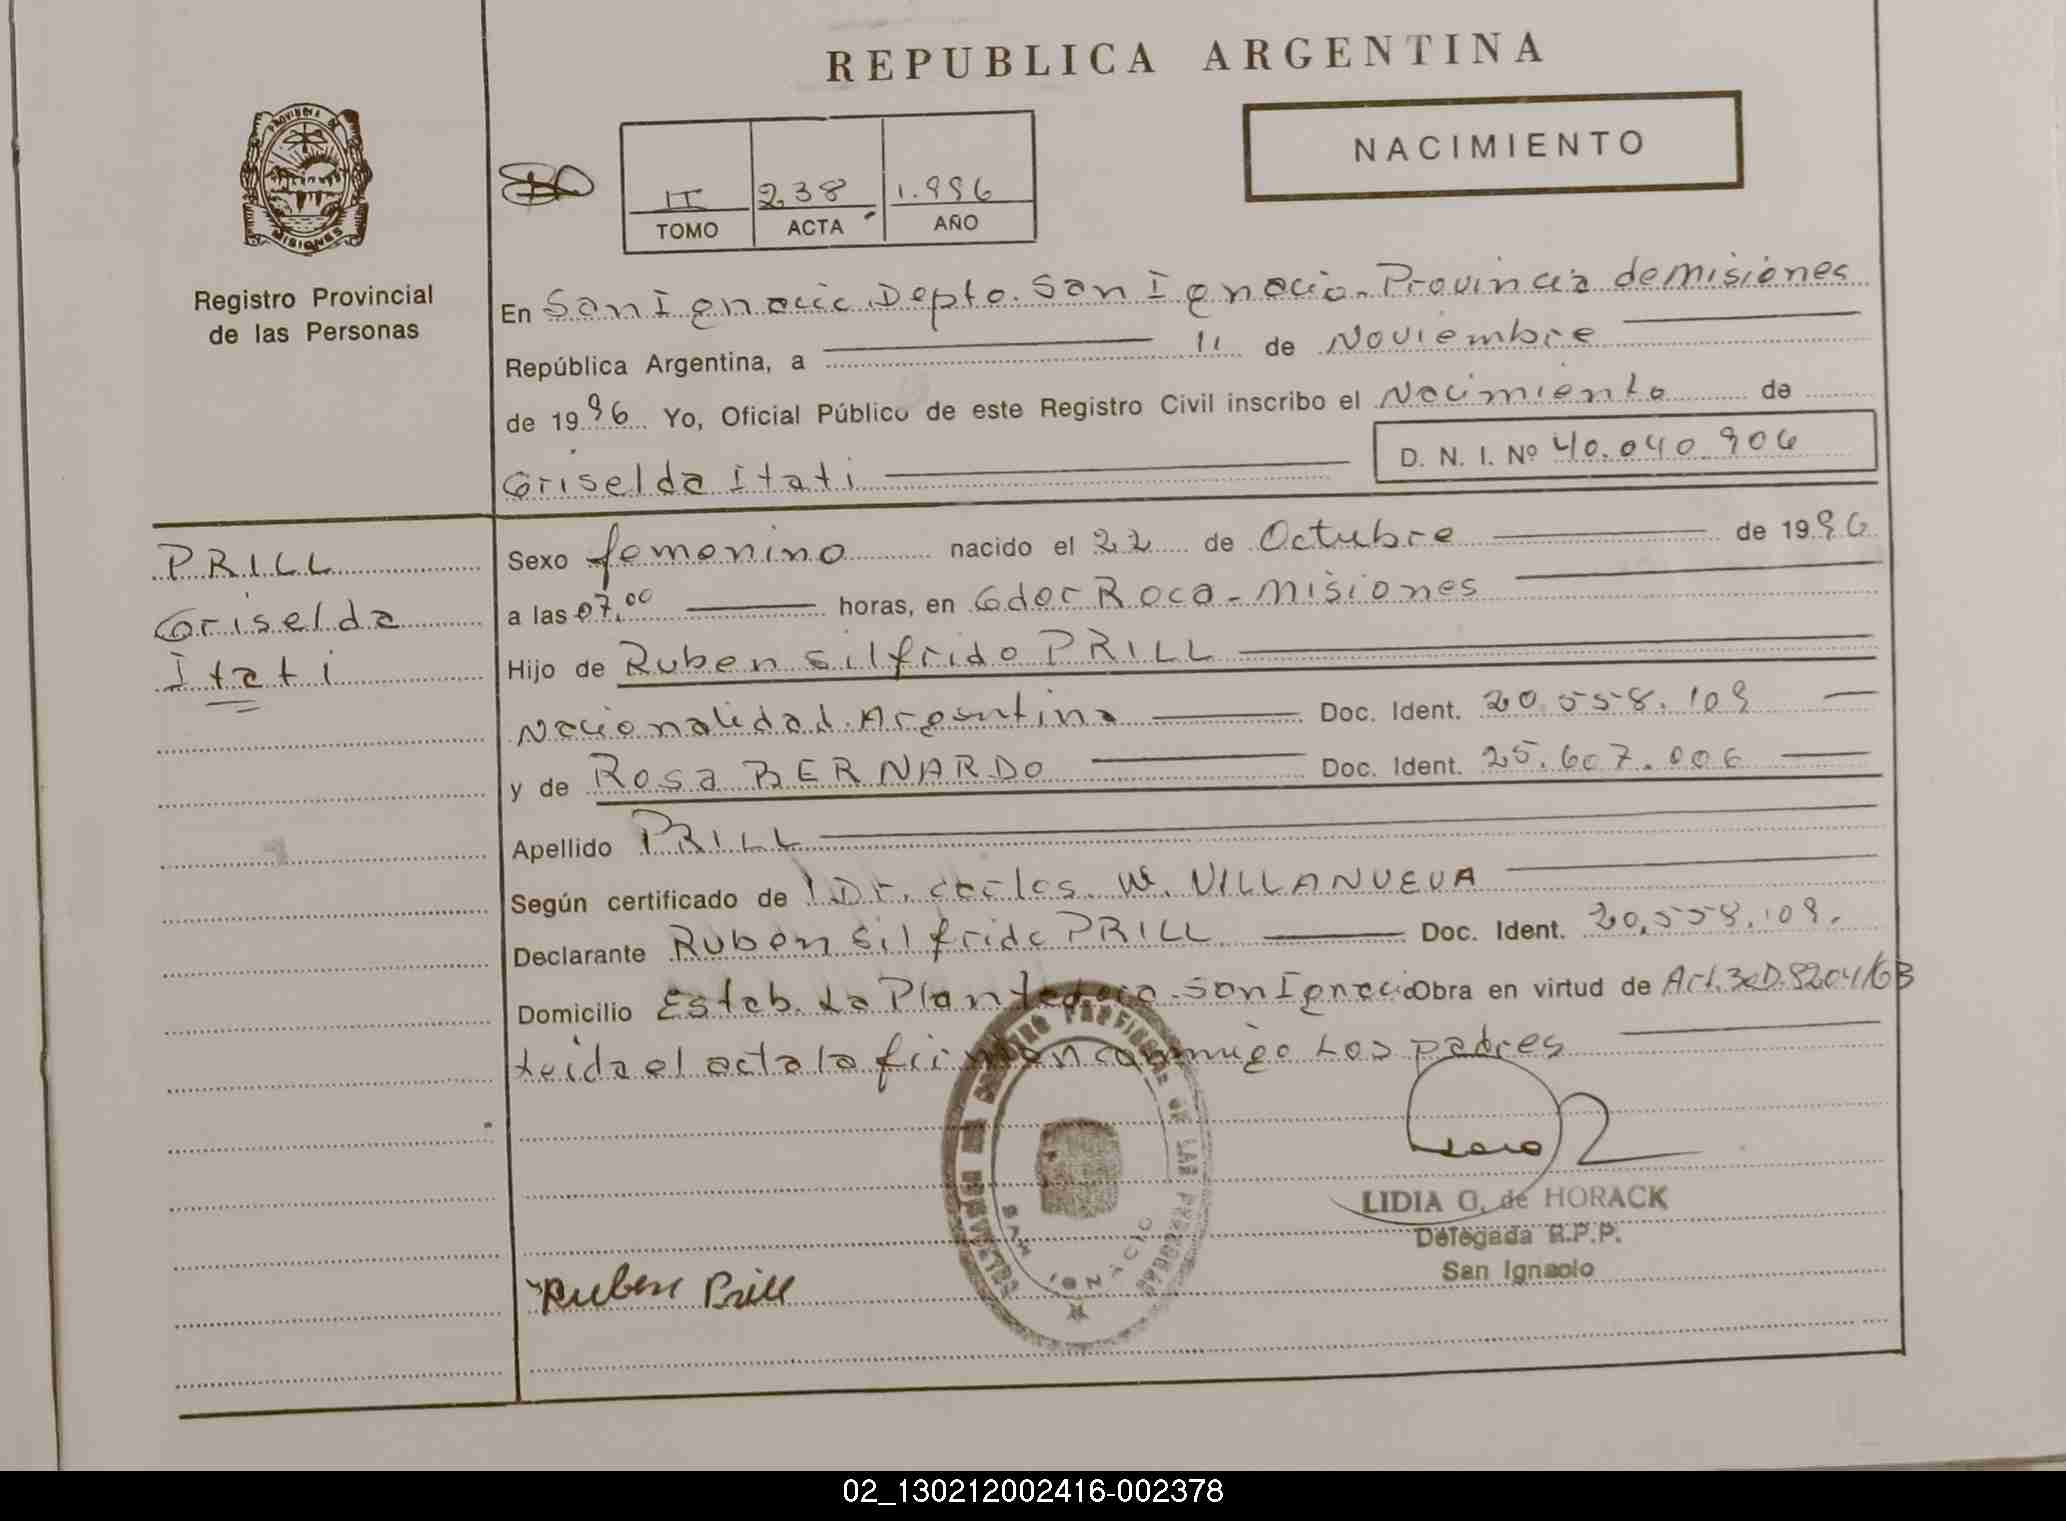 REPUBLICA ARGENTINA
NACIMIENTO
PROVINCIA DE
MISIONES
Registro Provincial
de las Personas
II 238 1.996
TOMO ACTA AÑO
En San Ignacio Depto. San Ignacio. Provincia de Misiones
República Argentina, a 11 de Noviembre
de 1996 Yo, Oficial Público de este Registro Civil inscribo el Nacimiento de
Griselda Itati
D. N. I. Nº 40.040.906
PRILL
Griselda
Itati
Sexo femenino nacido el 22 de Octubre de 1996
a las 07,00 horas, en Gdor Roca - Misiones
Hijo de Ruben Silfrido PRILL
Nacionalidad Argentina Doc. Ident. 20.558.109
y de Rosa BERNARDO Doc. Ident. 25.607.006
Apellido PRILL
Según certificado de Dr. Carlos. W. VILLANUEVA
Declarante Ruben Silfrido PRILL Doc. Ident. 20.558.109.
Domicilio Estab. La Plantadora - San Ignacio Obra en virtud de Art. 3 e D. 8204/63
Leida el acta la firman conmigo Los padres
REGISTRO PROVINCIAL DE LAS PERSONAS
SAN IGNACIO
LIDIA G. de HORACK
Delegada R.P.P.
San Ignacio
Ruben Prill
02_130212002416-002378